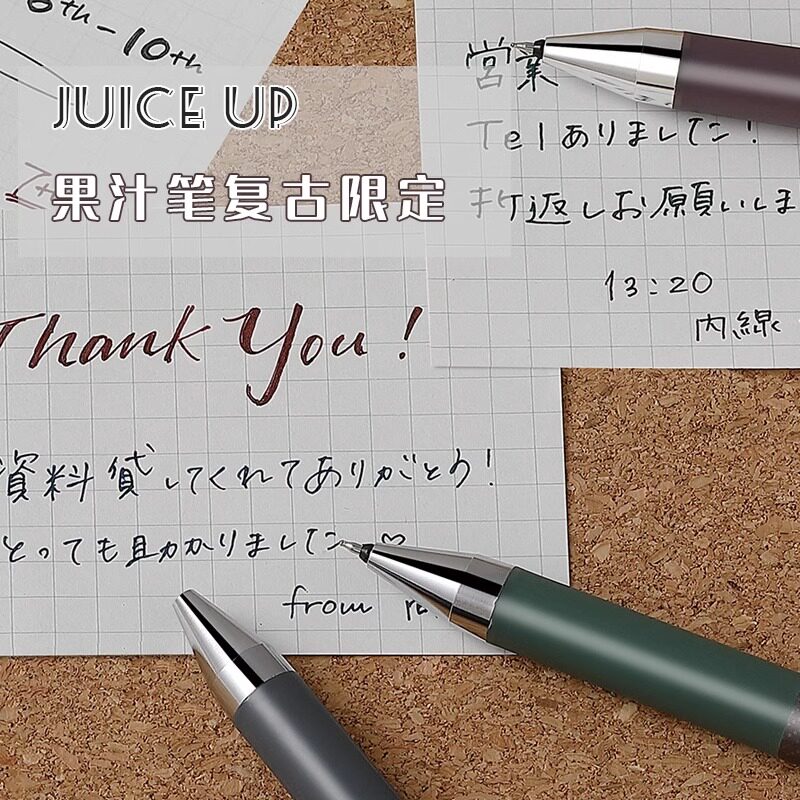 6th-10th
JUICE UP
果汁笔复古限定
Thank You!
資料貸してくれてありがとう!
とっても助かりました♡
from
営業
Telありました!
折返しお願いしま
13:20
内線